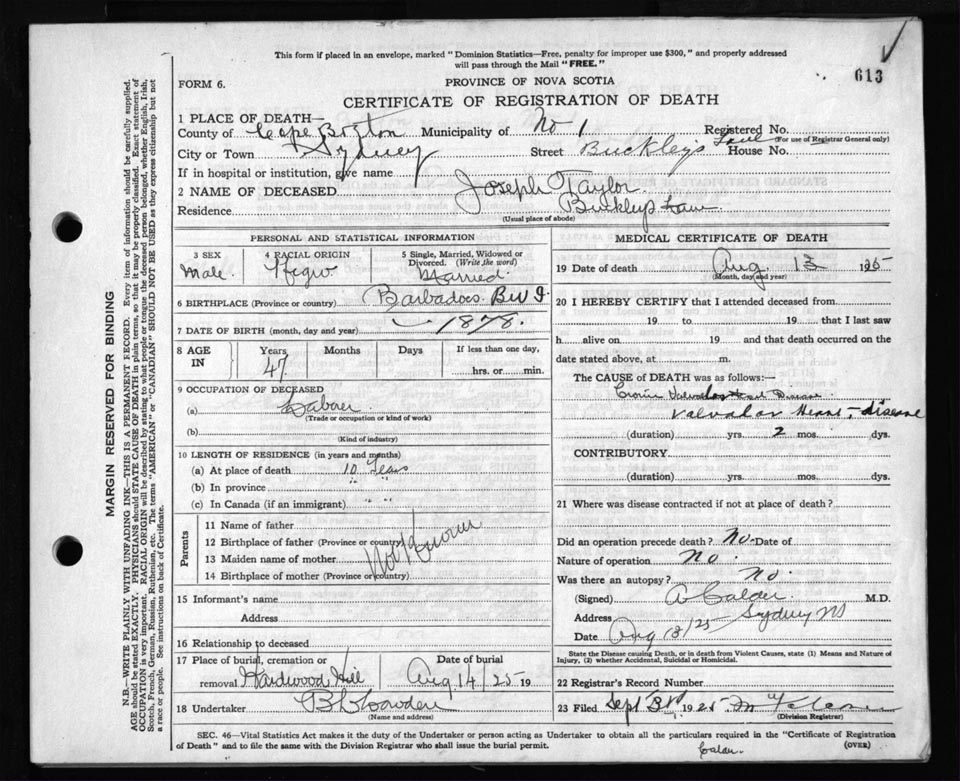 This form if placed in an envelope, marked "Dominion Statistics—Free, penalty for improper use $300," and properly addressed
will pass through the Mail "FREE."
613
FORM 6.
PROVINCE OF NOVA SCOTIA
CERTIFICATE OF REGISTRATION OF DEATH
1 PLACE OF DEATH—
County of Cape Breton Municipality of No 1 Registered No.
(For use of Registrar General only)
City or Town Sydney Street Buckley's Lane House No.
If in hospital or institution, give name
2 NAME OF DECEASED Joseph Taylor
Residence Buckleys Lane
(Usual place of abode)
PERSONAL AND STATISTICAL INFORMATION
3 SEX
Male
4 RACIAL ORIGIN
Negro
5 Single, Married, Widowed or
Divorced. (Write the word)
Married.
6 BIRTHPLACE (Province or country) Barbadoes. B W I.
7 DATE OF BIRTH (month, day and year) 1878.
8 AGE IN
Years Months Days If less than one day,
47 hrs. or min.
9 OCCUPATION OF DECEASED
(a) Laborer
(Trade or occupation or kind of work)
(b)
(Kind of industry)
10 LENGTH OF RESIDENCE (in years and months)
(a) At place of death 10 Years
(b) In province " "
(c) In Canada (if an immigrant) " "
Parents
11 Name of father
12 Birthplace of father (Province or country)
13 Maiden name of mother
14 Birthplace of mother (Province or country)
Not Known
15 Informant's name
Address
16 Relationship to deceased
17 Place of burial, cremation or
removal Hardwood Hill
Date of burial
Aug 14/25 19
18 Undertaker
(Name and address)
MEDICAL CERTIFICATE OF DEATH
19 Date of death Aug 13 1925
(Month, day and year)
20 I HEREBY CERTIFY that I attended deceased from
19 to 19 that I last saw
h alive on 19 and that death occurred on the
date stated above, at m.
The CAUSE of DEATH was as follows:—
Valvular Heart Disease
Valvular Heart disease
(duration) yrs. 2 mos. dys.
CONTRIBUTORY
(duration) yrs. mos. dys.
21 Where was disease contracted if not at place of death?
Did an operation precede death? No. Date of
Nature of operation No.
Was there an autopsy? No.
(Signed) A Calder M.D.
Address Sydney NS
Date Aug 13/25
State the Disease causing Death, or in death from Violent Causes, state (1) Means and Nature of
Injury, (2) whether Accidental, Suicidal or Homicidal.
22 Registrar's Record Number
23 Filed Sept 3rd 1925
(Division Registrar)
SEC. 46—Vital Statistics Act makes it the duty of the Undertaker or person acting as Undertaker to obtain all the particulars required in the "Certificate of Registration
of Death" and to file the same with the Division Registrar who shall issue the burial permit.
(OVER)
MARGIN RESERVED FOR BINDING
N.B.—WRITE PLAINLY WITH UNFADING INK—THIS IS A PERMANENT RECORD. Every item of information should be carefully supplied.
AGE should be stated EXACTLY. PHYSICIANS should STATE CAUSE OF DEATH in plain terms, so that it may be properly classified. Exact statement of
OCCUPATION is very important. RACIAL ORIGIN will be described by stating to what people or tongue the deceased person belonged, whether English, Irish,
Scotch, French, German, Russian, Ruthenian, etc. The terms "AMERICAN" or "CANADIAN" SHOULD NOT BE USED as they express citizenship but not
a race or people. See instructions on back of Certificate.